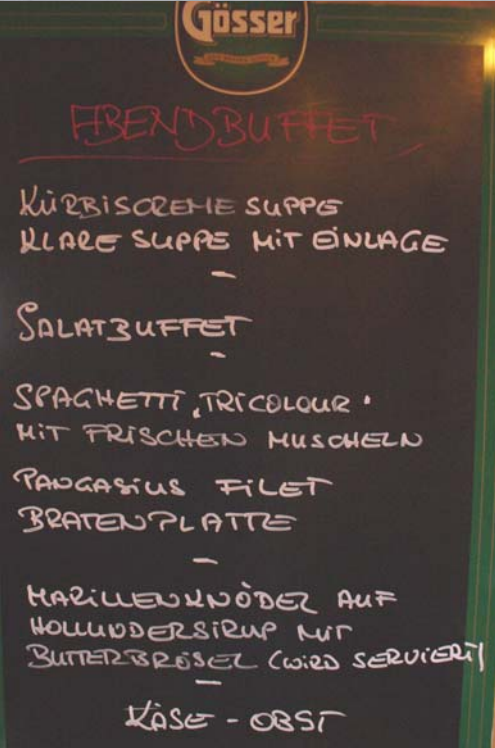 Gösser
ABENDBUFFET
KÜRBISCREME SUPPE
KLARE SUPPE MIT EINLAGE
-
SALATBUFFET
-
SPAGHETTI "TRICOLOUR"
MIT FRISCHEN MUSCHELN
PANGASIUS FILET
BRATENPLATTE
-
MARILLENKNÖDEL AUF
HOLLUNDERSIRUP MIT
BUTTERBRÖSEL (WIRD SERVIERT)
-
KÄSE - OBST